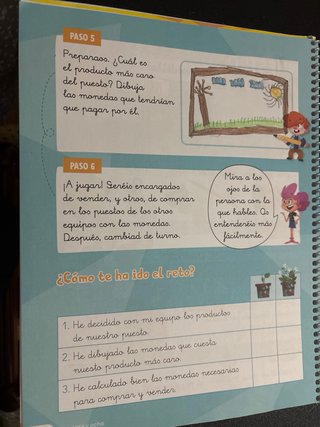 PASO 5
Preparaos. ¿Cuál es
el producto más caro
del puesto? Dibuja
las monedas que tendrían
que pagar por él.
PASO 6
¡A jugar! Seréis encargados
de vender, y otros, de comprar
en los puestos de los otros
equipos con las monedas.
Después, cambiad de turno.
Mira a los
ojos de la
persona con la
que hables. Os
entenderéis más
fácilmente.
¿Cómo te ha ido el reto?
1. He decidido con mi equipo los productos
de nuestro puesto.
2. He dibujado las monedas que cuesta
nuestro producto más caro.
3. He calculado bien las monedas necesarias
para comprar y vender.